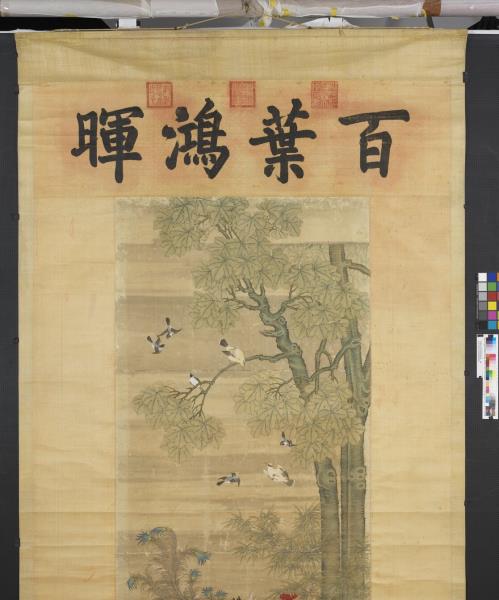 百葉鴻暉